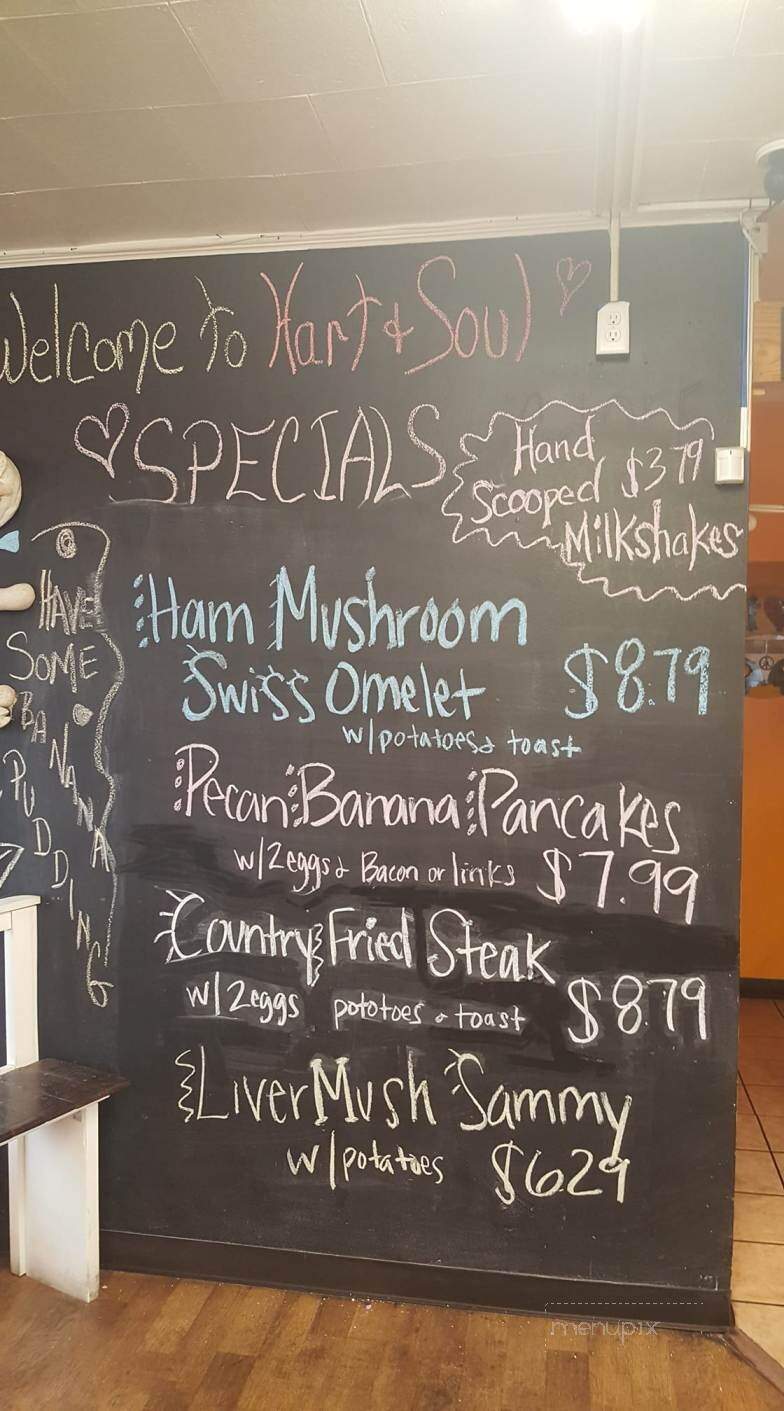 Welcome To Hart & Soul
SPECIALS
Hand
Scooped $3.79
Milkshakes
HAVE
SOME
BANANA
PUDDING
Ham Mushroom
Swiss Omelet $8.79
w/potatoes & toast
Pecan Banana Pancakes
w/2eggs & Bacon or links $7.99
Country Fried Steak
w/2eggs pototoes & toast $8.79
LiverMush Sammy
w/potatoes $6.29
menupix